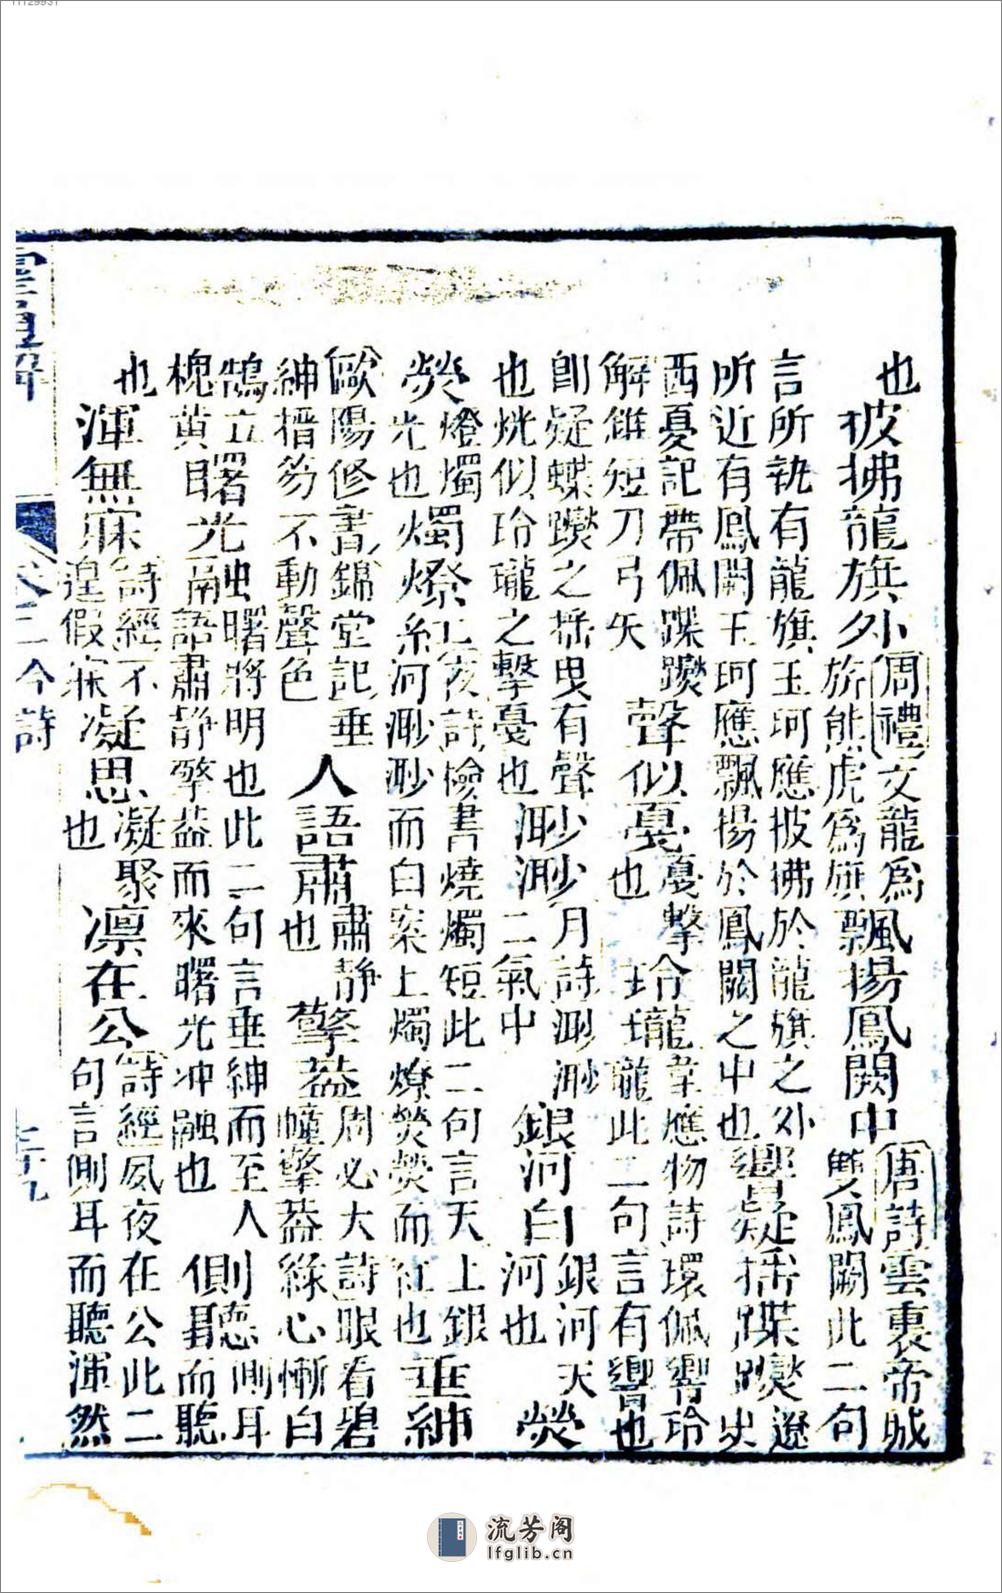 也披拂龍旗外周禮交龍爲旂熊虎爲旗飄揚鳳闕中唐詩雲裏帝城雙鳳闕此二句
言所執有龍旗玉珂應披拂於龍旗之外所近有鳳闕玉珂應飄揚於鳳闕之中也響疑搖蹀躞遼史
西夏記帶佩蹀躞解錐短刀弓矢聲似戛戛擊也玲瓏韋應物詩環佩響玲瓏此二句言有響也
卽疑蝶躞之搖曳有聲也恍似玲瓏之擊戛也渺渺月詩渺渺二氣中銀河白銀河天河也熒
熒燈燭光也燭燎紅夜詩檢書燒燭短此二句言天上銀河渺渺而白案上燭燎熒熒而紅也垂紳
歐陽修晝錦堂記垂紳搢笏不動聲色人語肅肅靜也擎蓋周必大詩眼看碧幢擎蓋綠心慚白
鵠立槐黃曙光融曙將明也此二句言垂紳而至人語肅靜擎蓋而來曙光沖融也側聽側耳而聽
也渾無寐詩經不遑假寐凝思凝聚也凛在公詩經夙夜在公此二句言側耳而聽渾然
卷二今詩
二十九
流芳阁
lfglib.cn